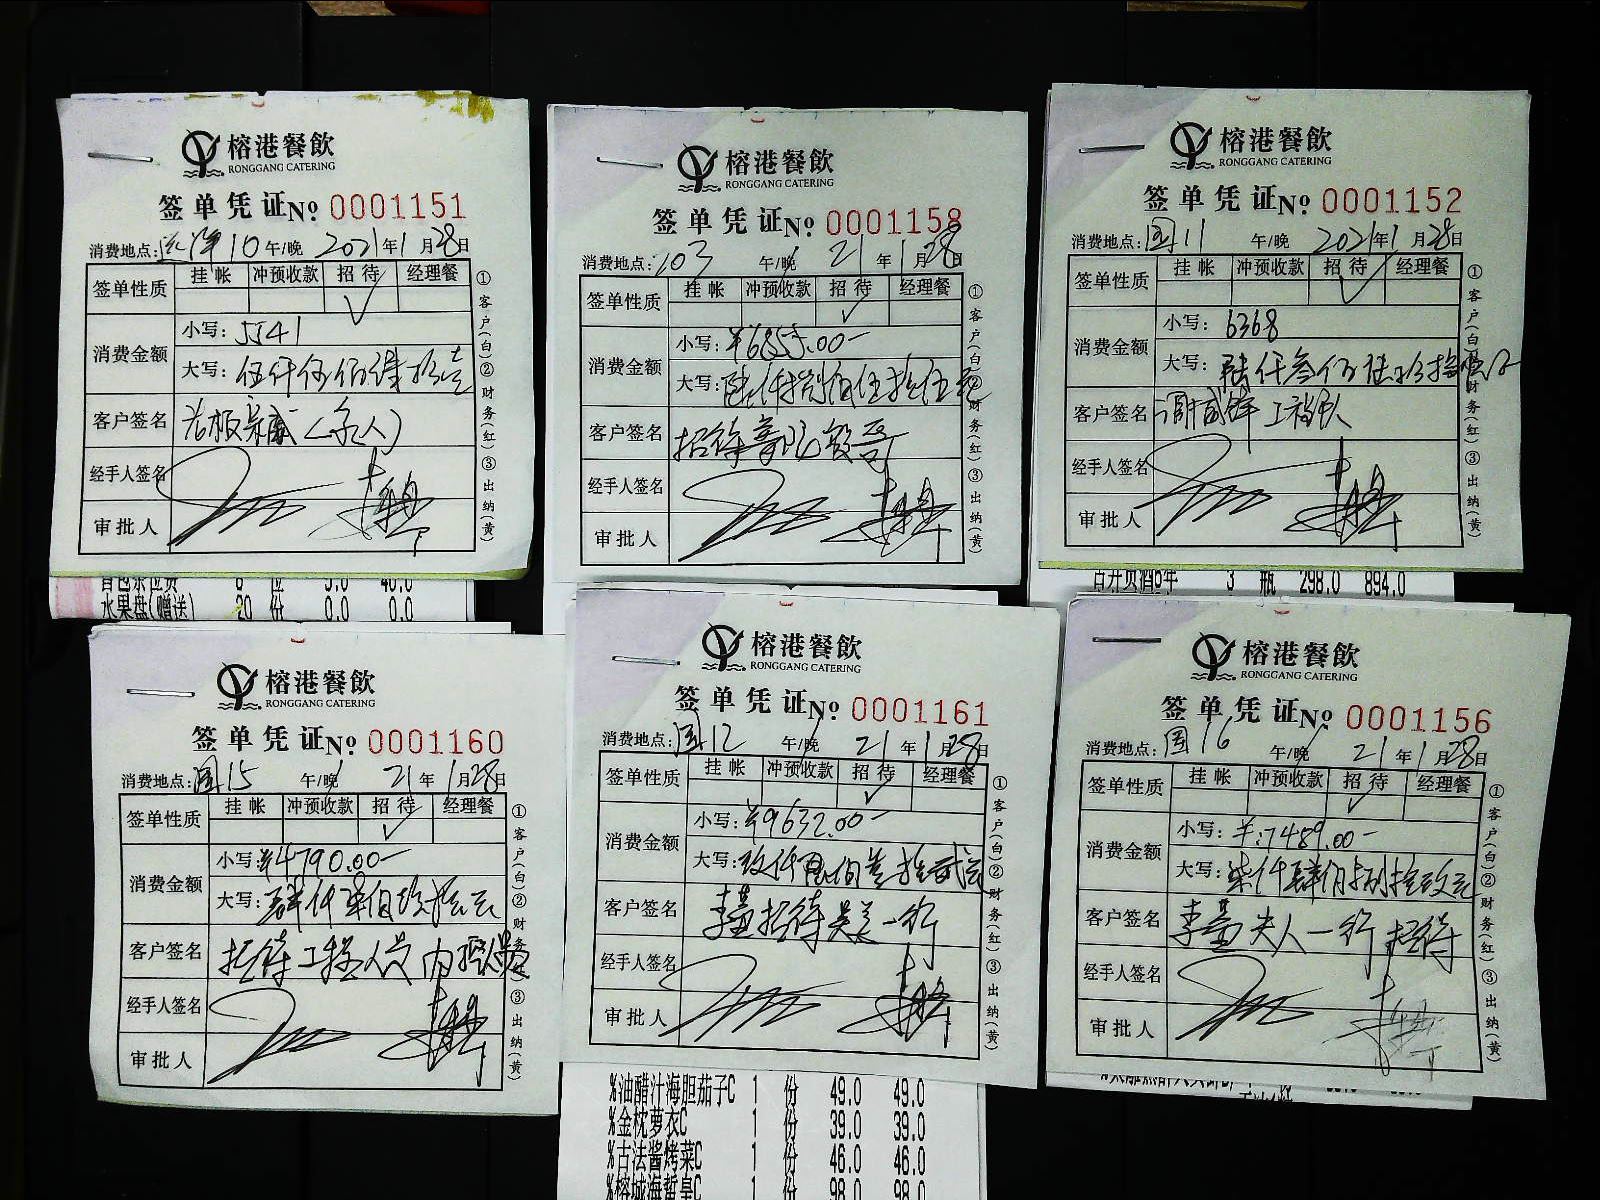 榕港餐飲
RONGGANG CATERING
签单凭证 № 0001151
消费地点: 10 午/晚 2021年1月28日
签单性质 挂帐 冲预收款 招待 经理餐
✓
消费金额 小写: 5541
大写: 伍仟伍佰肆拾壹
客户签名 老板亲戚(家人)
经手人签名
审批人
①客户(白)②财务(红)③出纳(黄)
位 5.0 40.0
水果盘(赠送) 20 份 0.0 0.0
榕港餐飲
RONGGANG CATERING
签单凭证 № 0001158
消费地点: 103 午/晚 21年1月28日
签单性质 挂帐 冲预收款 招待 经理餐
✓
消费金额 小写: ¥6855.00-
大写: 陆仟捌佰伍拾伍元
客户签名 招待
经手人签名
审批人
①客户(白)②财务(红)③出纳(黄)
榕港餐飲
RONGGANG CATERING
签单凭证 № 0001152
消费地点: 国11 午/晚 2021年1月28日
签单性质 挂帐 冲预收款 招待 经理餐
✓
消费金额 小写: 6368
大写: 陆仟叁佰陆拾捌元
客户签名 谢 工程队
经手人签名
审批人
①客户(白)②财务(红)③出纳(黄)
3 瓶 298.0 894.0
榕港餐飲
RONGGANG CATERING
签单凭证 № 0001160
消费地点: 国15 午/晚 21年1月28日
签单性质 挂帐 冲预收款 招待 经理餐
✓
消费金额 小写: ¥4790.00-
大写: 肆仟柒佰玖拾元
客户签名 招待工程人员
经手人签名
审批人
①客户(白)②财务(红)③出纳(黄)
榕港餐飲
RONGGANG CATERING
签单凭证 № 0001161
消费地点: 国12 午/晚 21年1月28日
签单性质 挂帐 冲预收款 招待 经理餐
✓
消费金额 小写: ¥9632.00-
大写: 玖仟陆佰叁拾贰元
客户签名 李 招待 一行
经手人签名
审批人
①客户(白)②财务(红)③出纳(黄)
%油醋汁海胆茄子C 1 份 49.0 49.0
%金枕萝衣C 1 份 39.0 39.0
%古法酱烤菜C 1 份 46.0 46.0
%榕城海蜇皇C 1 份 98.0 98.0
榕港餐飲
RONGGANG CATERING
签单凭证 № 0001156
消费地点: 国16 午/晚 21年1月28日
签单性质 挂帐 冲预收款 招待 经理餐
✓
消费金额 小写: ¥:7489.00-
大写: 柒仟肆佰捌拾玖元
客户签名 李 夫人一行 招待
经手人签名
审批人
①客户(白)②财务(红)③出纳(黄)